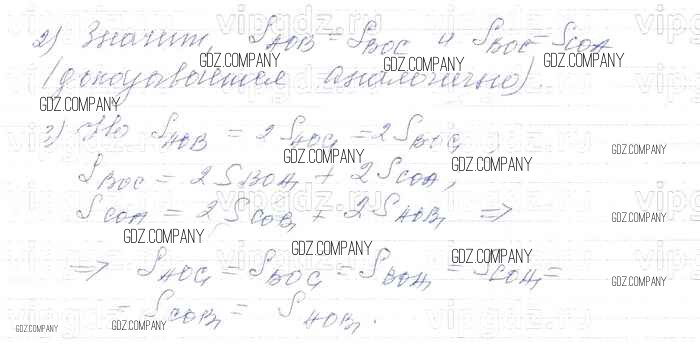 2) Значит, S_AOB = S_BOC и S_BOC = S_COA
(доказывается аналогично).
3) Но S_AOB = 2S_AOC₁ = 2S_BOC₁,
S_BOC = 2S_BOA₁ + 2S_COA₁,
S_COA = 2S_COB₁ + 2S_AOB₁ ⇒
⇒ S_AOC₁ = S_BOC₁ = S_BOA₁ = S_COA₁ =
= S_COB₁ = S_AOB₁.
GDZ.COMPANY
GDZ.COMPANY
GDZ.COMPANY
GDZ.COMPANY
GDZ.COMPANY
GDZ.COMPANY
GDZ.COMPANY
GDZ.COMPANY
GDZ.COMPANY
GDZ.COMPANY
GDZ.COMPANY
GDZ.COMPANY
GDZ.COMPANY
GDZ.COMPANY